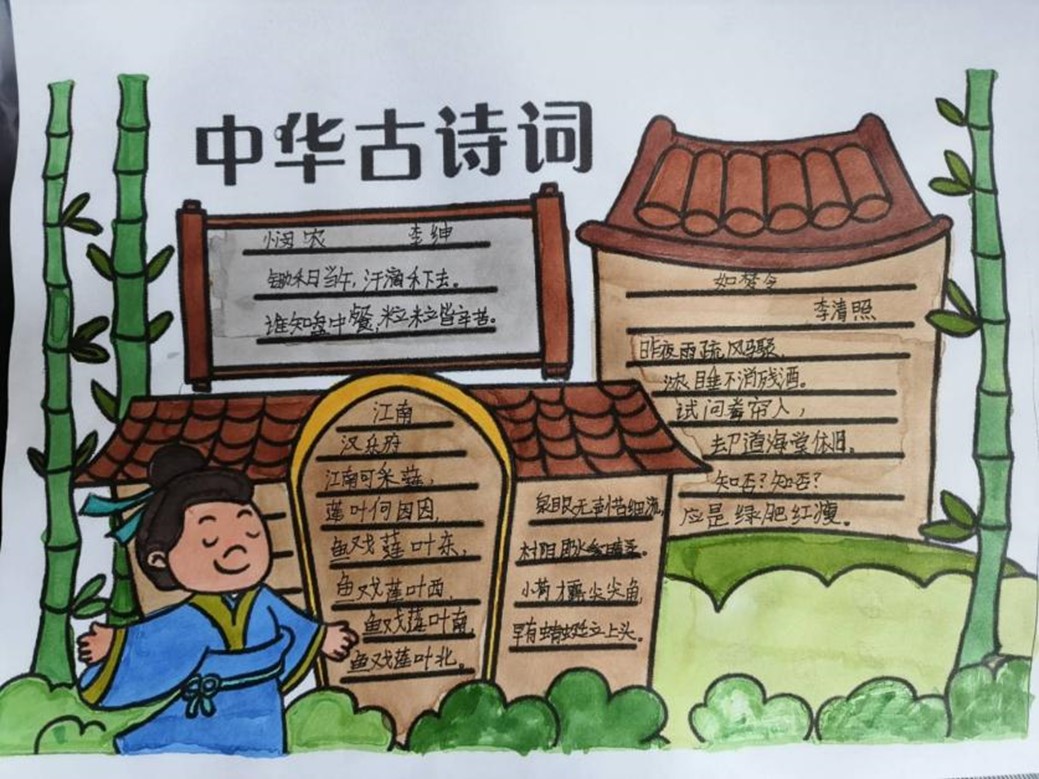 中华古诗词
悯农 李绅
锄禾日当午,汗滴禾下去。
谁知盘中餐,粒粒皆辛苦。
如梦令
李清照
昨夜雨疏风骤,
浓睡不消残酒。
试问卷帘人,
却道海棠依旧。
知否?知否?
应是绿肥红瘦。
江南
汉乐府
江南可采莲,
莲叶何田田,
鱼戏莲叶东,
鱼戏莲叶西,
鱼戏莲叶南,
鱼戏莲叶北。
泉眼无声惜细流,
小荷才露尖尖角,
早有蜻蜓立上头。